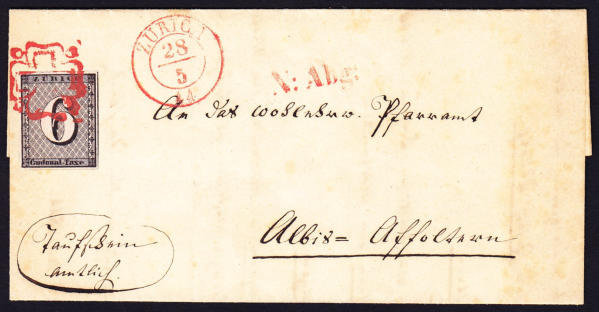 ZÜRICH
28
5
44
N: Abg:
ZÜRICH
6
Cantonal-Taxe.
An das wohlehrw. Pfarramt
Albis= Affoltern
Taufschein
amtlich.